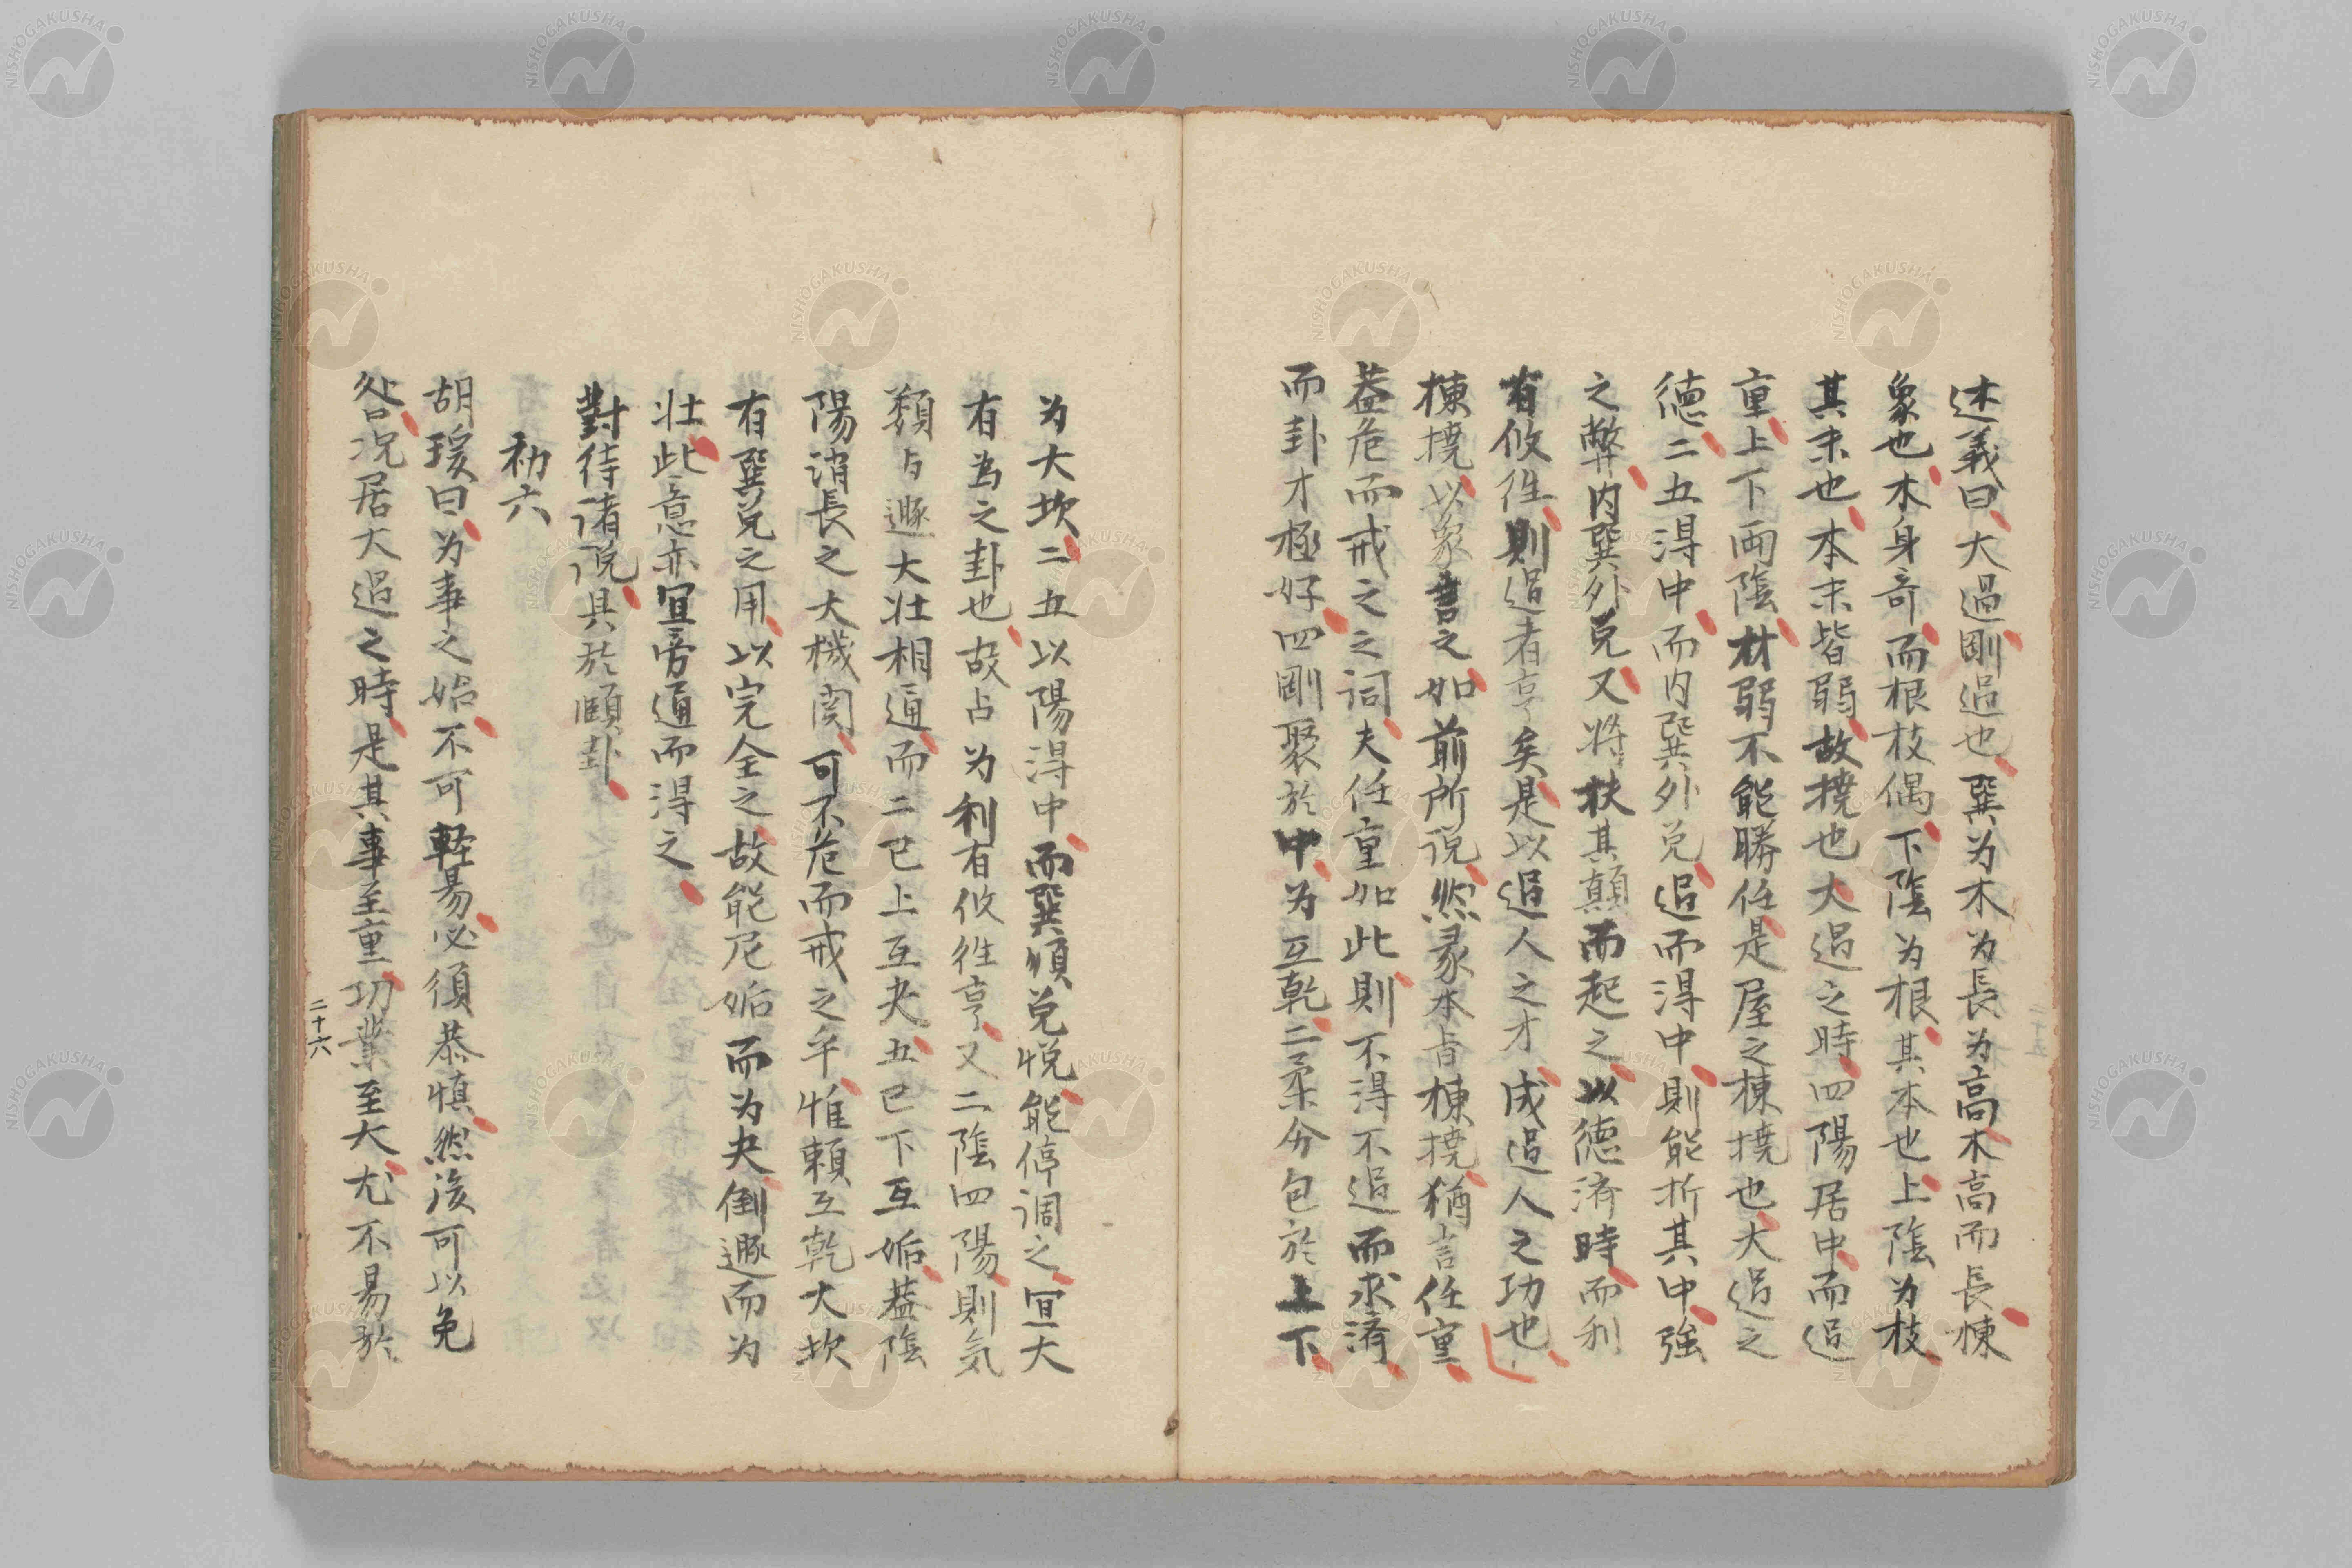 述義曰大過剛過也巽为木为長为高木高而長棟
象也木身奇而根枝偶下陰为根其本也上陰为枝
其末也本末皆弱故撓也大過之時四陽居中而過
重上下両陰材弱不能勝任是屋之棟撓也大過之
徳二五得中而内巽外兑過而得中則能折其中強
之弊内巽外兑又将扶其顛而起之以徳済時而利
有攸往則過者亨矣是以過人之才成過人之功也
棟撓以象言之如前所説然彖本旨棟撓猶言任重
蓋危而戒之之詞夫任重如此則不得不過而求済
而卦才極好四剛聚於中为互乾二柔分包於上下
为大坎二五以陽得中而巽順兑悦能停調之宜大
有為之卦也故占为利有攸往亨又二陰四陽則気
類与遯大壮相通而二已上互夬五已下互姤蓋陰
陽消長之大機関可不危而戒之乎惟頼互乾大坎
有巽兑之用以完全之故能尼姤而为夬倒遯而为
壮此意亦宜旁通而得之
對待諸説具於頤卦
初六
胡瑗曰为事之始不可軽易必須恭慎然後可以免
咎况居大過之時是其事至重功業至大尤不易於
二十六
NISHOGAKUSHA